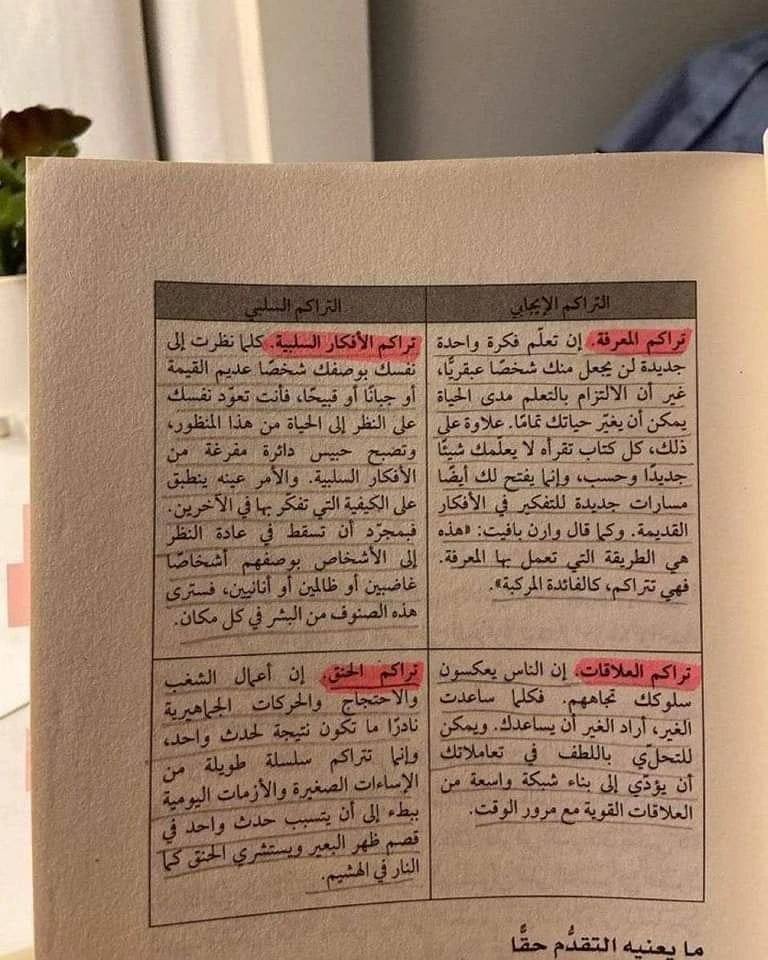 التراكم الإيجابي
التراكم السلبي
تراكم المعرفة. إن تعلّم فكرة واحدة
جديدة لن يجعل منك شخصًا عبقريًّا،
غير أن الالتزام بالتعلم مدى الحياة
يمكن أن يغيّر حياتك تمامًا. علاوة على
ذلك، كل كتاب تقرأه لا يعلّمك شيئًا
جديدًا وحسب، وإنما يفتح لك أيضًا
مسارات جديدة للتفكير في الأفكار
القديمة. وكما قال وارن بافيت: «هذه
هي الطريقة التي تعمل بها المعرفة.
فهي تتراكم، كالفائدة المركبة».
تراكم الأفكار السلبية. كلما نظرت إلى
نفسك بوصفك شخصًا عديم القيمة
أو جبانًا أو قبيحًا، فأنت تعوّد نفسك
على النظر إلى الحياة من هذا المنظور،
وتصبح حبيس دائرة مفرغة من
الأفكار السلبية. والأمر عينه ينطبق
على الكيفية التي تفكّر بها في الآخرين.
فبمجرّد أن تسقط في عادة النظر
إلى الأشخاص بوصفهم أشخاصًا
غاضبين أو ظالمين أو أنانيين، فسترى
هذه الصنوف من البشر في كل مكان.
تراكم العلاقات. إن الناس يعكسون
سلوكك تجاههم. فكلما ساعدت
الغير، أراد الغير أن يساعدك. ويمكن
للتحلّي باللطف في تعاملاتك
أن يؤدّي إلى بناء شبكة واسعة من
العلاقات القوية مع مرور الوقت.
تراكم الحنق. إن أعمال الشغب
والاحتجاج والحركات الجماهيرية
نادرًا ما تكون نتيجة لحدث واحد،
وإنما تتراكم سلسلة طويلة من
الإساءات الصغيرة والأزمات اليومية
ببطء إلى أن يتسبب حدث واحد في
قصم ظهر البعير ويستشري الحنق كما
النار في الهشيم.
ما يعنيه التقدُّم حقًّا